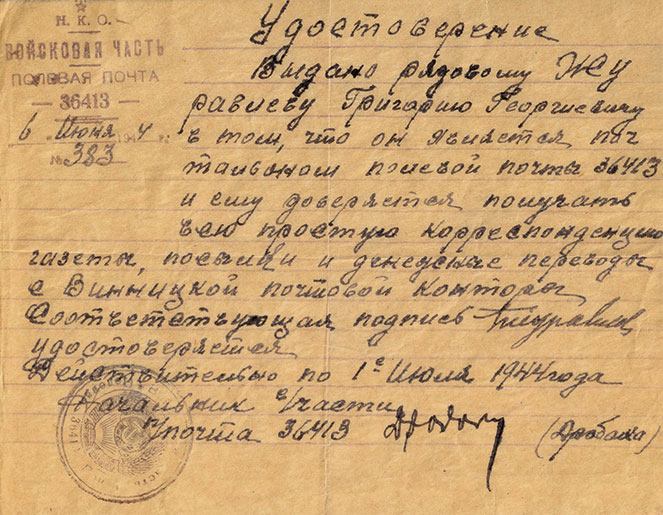 Н.К.О.
ВОЙСКОВАЯ ЧАСТЬ
ПОЛЕВАЯ ПОЧТА
— 36413 —
6 Июня 1944 г.
№ 383
Удостоверение
Выдано рядовому Жу
равлеву Григорию Георгиевичу
в том, что он является поч
тальоном полевой почты 36413
и ему доверяется получать
всю простую корреспонденцию
газеты, посылки и денежные переводы
с Винницкой почтовой конторы
Соответствующая подпись Журавлев
удостоверяется
Действительно по 1е Июля 1944 года
Начальник в/части
п/почта 36413 (Дробаха)